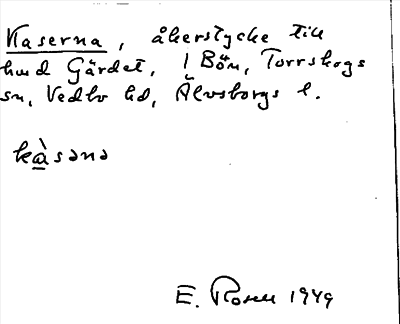 Kaserna, åkerstycke till
hmd Gärdet, 1 Bön, Torrskogs
sn, Vedbo hd, Älvsborgs l.
kàsənə
E. Rosen 1949